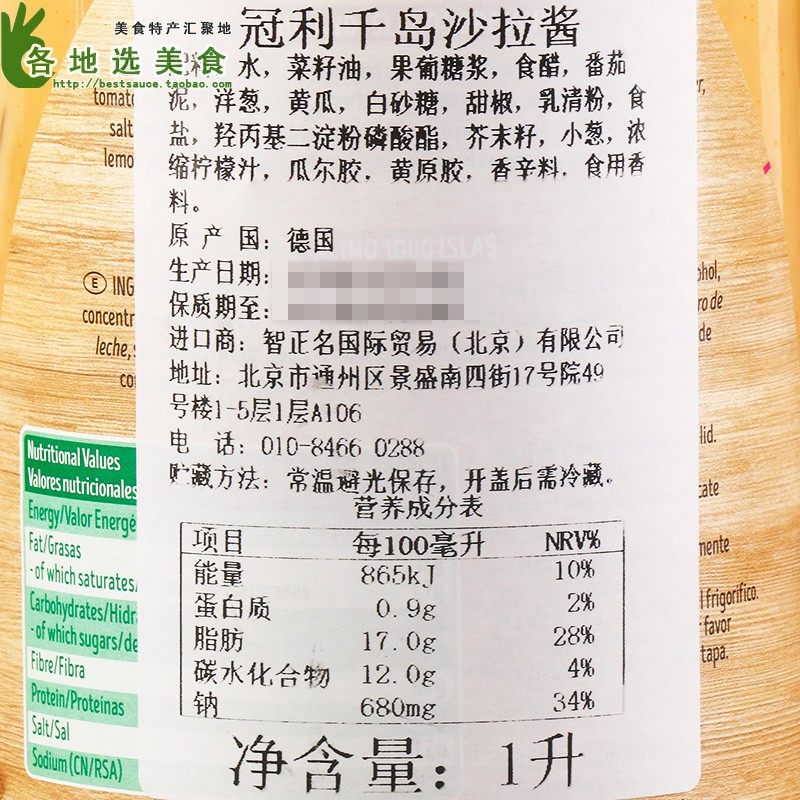 美食特产汇聚地
各地选美食
http://bestsauce.taobao.com
冠利千岛沙拉酱
水，菜籽油，果葡糖浆，食醋，番茄
泥，洋葱，黄瓜，白砂糖，甜椒，乳清粉，食
盐，羟丙基二淀粉磷酸酯，芥末籽，小葱，浓
缩柠檬汁，瓜尔胶，黄原胶，香辛料，食用香
料。
原 产 国：德国
生产日期：
保质期至：
进口商：智正名国际贸易（北京）有限公司
地址：北京市通州区景盛南四街17号院49
号楼1-5层1层A106
电 话：010-8466 0288
贮藏方法：常温避光保存，开盖后需冷藏。
营养成分表
项目 每100毫升 NRV%
能量 865kJ 10%
蛋白质 0.9g 2%
脂肪 17.0g 28%
碳水化合物 12.0g 4%
钠 680mg 34%
净含量：1升
tomato
salt
lemo
E ING
concentr
leche, s
co
Nutritional Values
Valores nutricionales
Energy/Valor Energé
Fat/Grasas
- of which saturates/
Carbohydrates/Hidr
- of which sugars/de
Fibre/Fibra
Protein/Proteinas
Salt/Sal
Sodium (CN/RSA)
ohol,
ro de
de
lid.
cate
mente
l frigorífico.
favor
tapa.